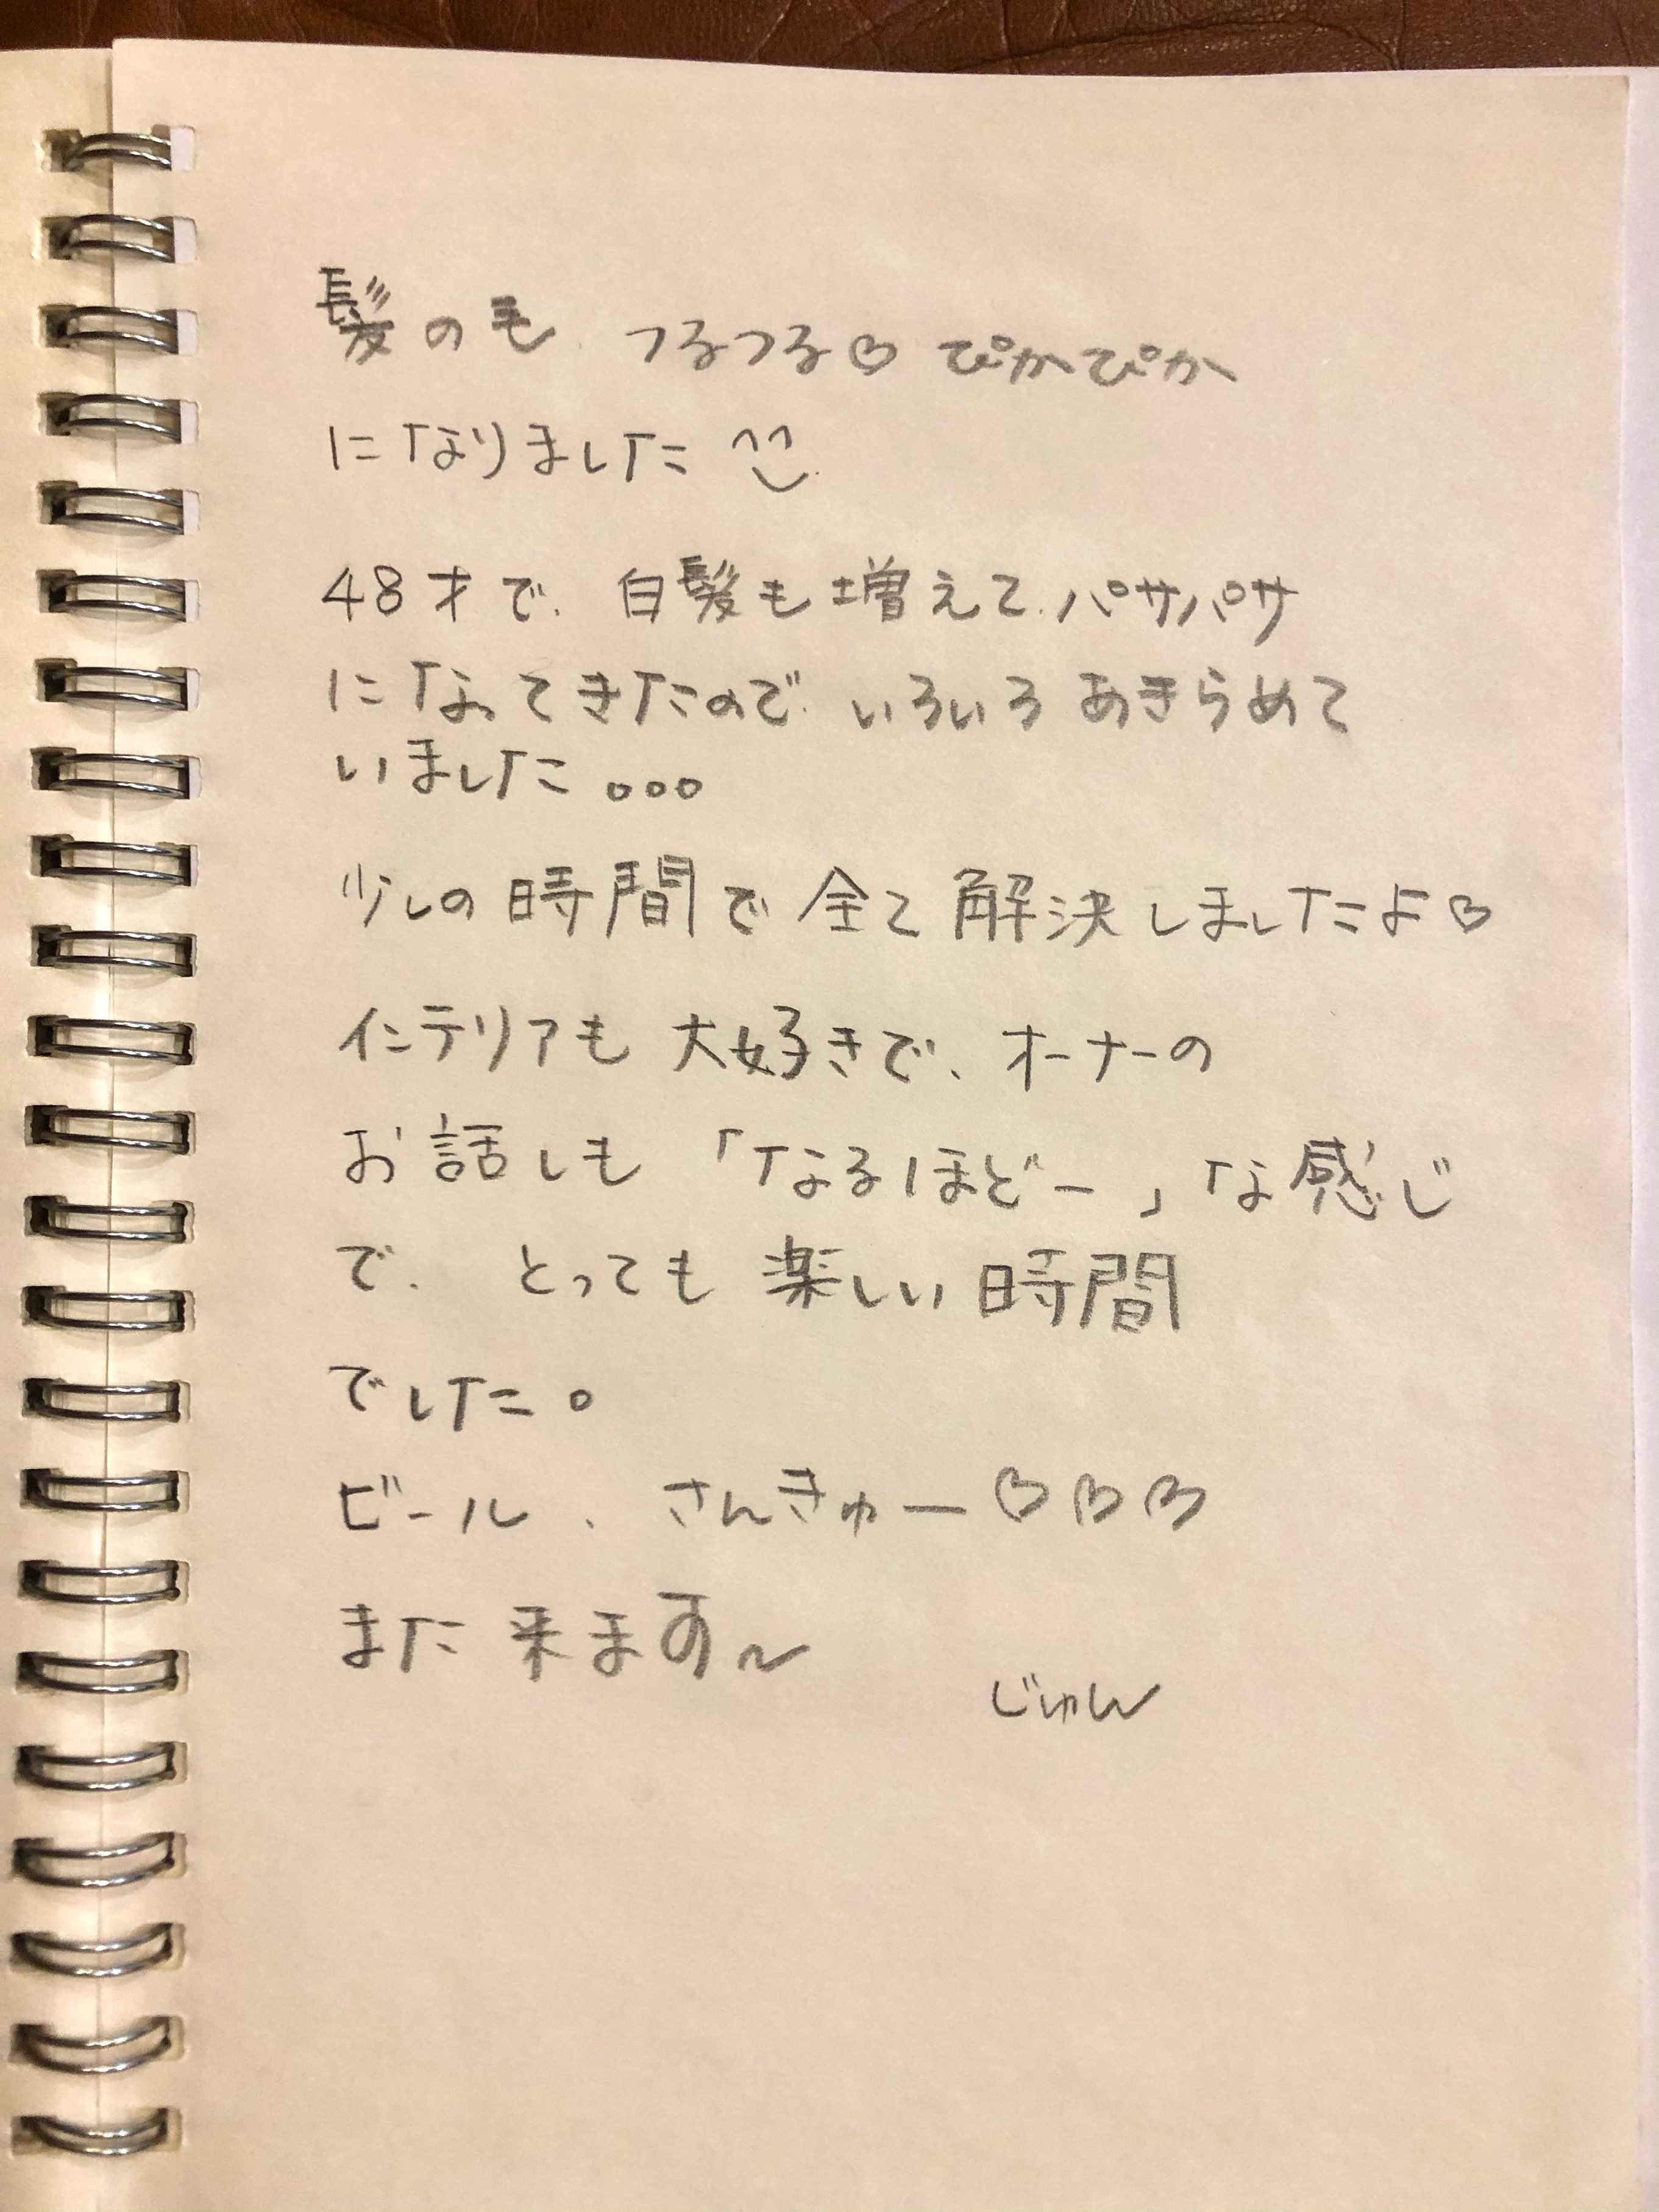 髪の毛、つるつる♡ぴかぴか
になりました^^
48才で、白髪も増えて、パサパサ
になってきたので、いろいろあきらめて
いました。。。
少しの時間で全て解決しましたよ♡
インテリアも大好きで、オーナーの
お話しも「なるほどー」な感じ
で、とっても楽しい時間
でした。
ビール、さんきゅー♡♡♡
また来ます〜
じゅん